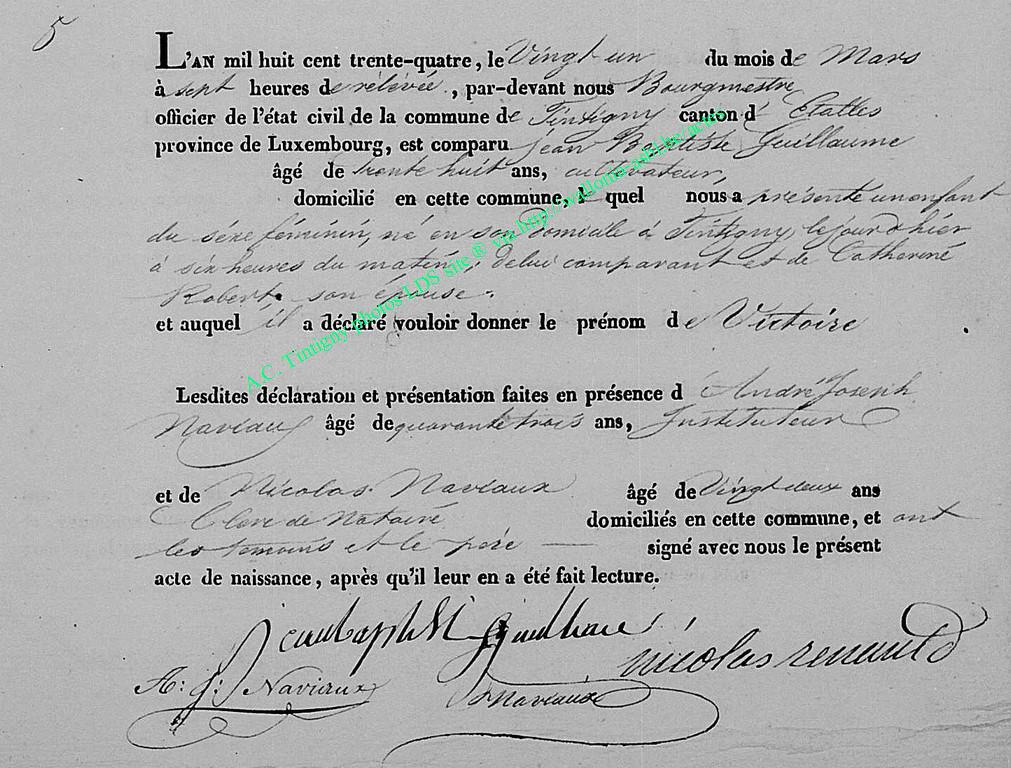 5
L'AN mil huit cent trente-quatre, le Vingt un du mois de Mars
à sept heures de rélévée, par-devant nous Bourgmestre,
officier de l'état civil de la commune de Tintigny canton d' Etalles
province de Luxembourg, est comparu jean Baptiste Guillaume
âgé de trente huit ans, cultivateur,
domicilié en cette commune, l quel nous a présenté un enfant
du séxe féminin, né en son domicile à Tintigny le jour d'hier
à six heures du matin, de lui comparant et de Catherine
Robert, son épouse.
et auquel il a déclaré vouloir donner le prénom de Victoire
Lesdites déclaration et présentation faites en présence d André Joseph
Naviaux âgé de quarante trois ans, Instituteur
et de Nicolas Naviaux âgé de Vingt deux ans
Clerc de Notaire domiciliés en cette commune, et ont
les témoins et le père signé avec nous le présent
acte de naissance, après qu'il leur en a été fait lecture.
jean baptist guillaume
nicolas renauld
A: J: Naviaux
Naviaux
A.C. Tintigny photos LDS site ® via http://wallonia-asbl.be/actes